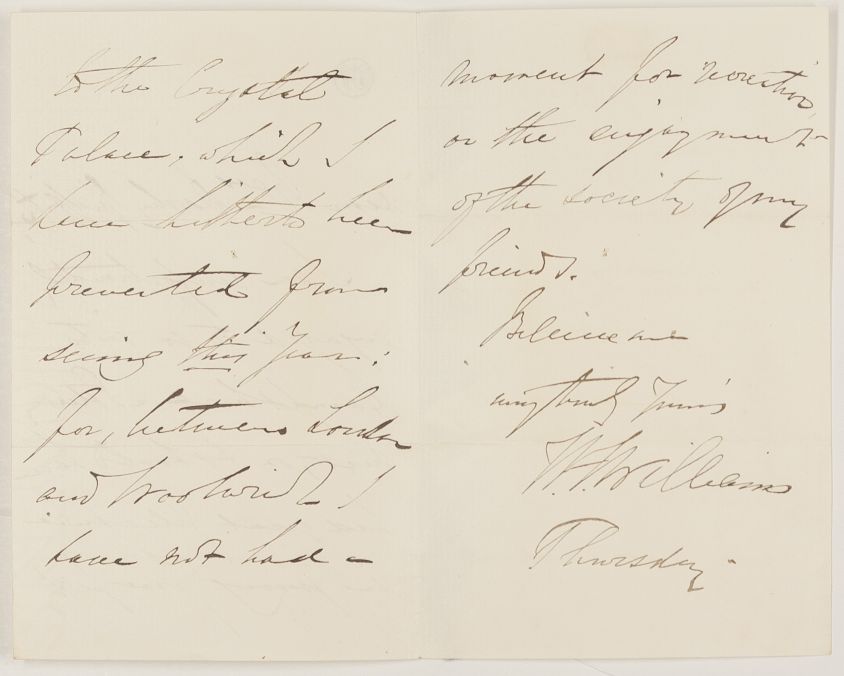 to the Crystal
Palace, which I
have hitherto been
prevented from
seeing this Year:
for, between London
and Woolwich I
have not had a
moment for recreation,
or the enjoyment
of the society of my
friends.
Believe me
very truly Yours
W. F. Williams
Thursday.